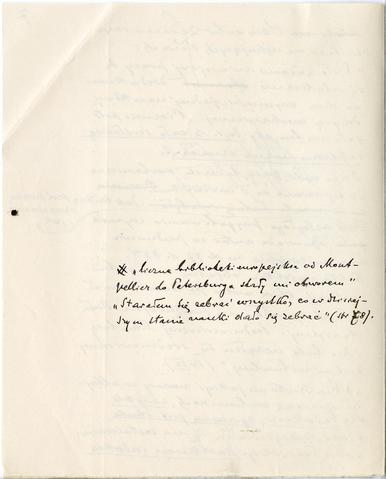 ※ „liczne biblioteki europejskie od Mont-
pellier do Petersburga stały mi otworem"
„Starałem się zebrać wszystko, co w dzisiej-
szym stanie nauki dało się zebrać" (str 78).